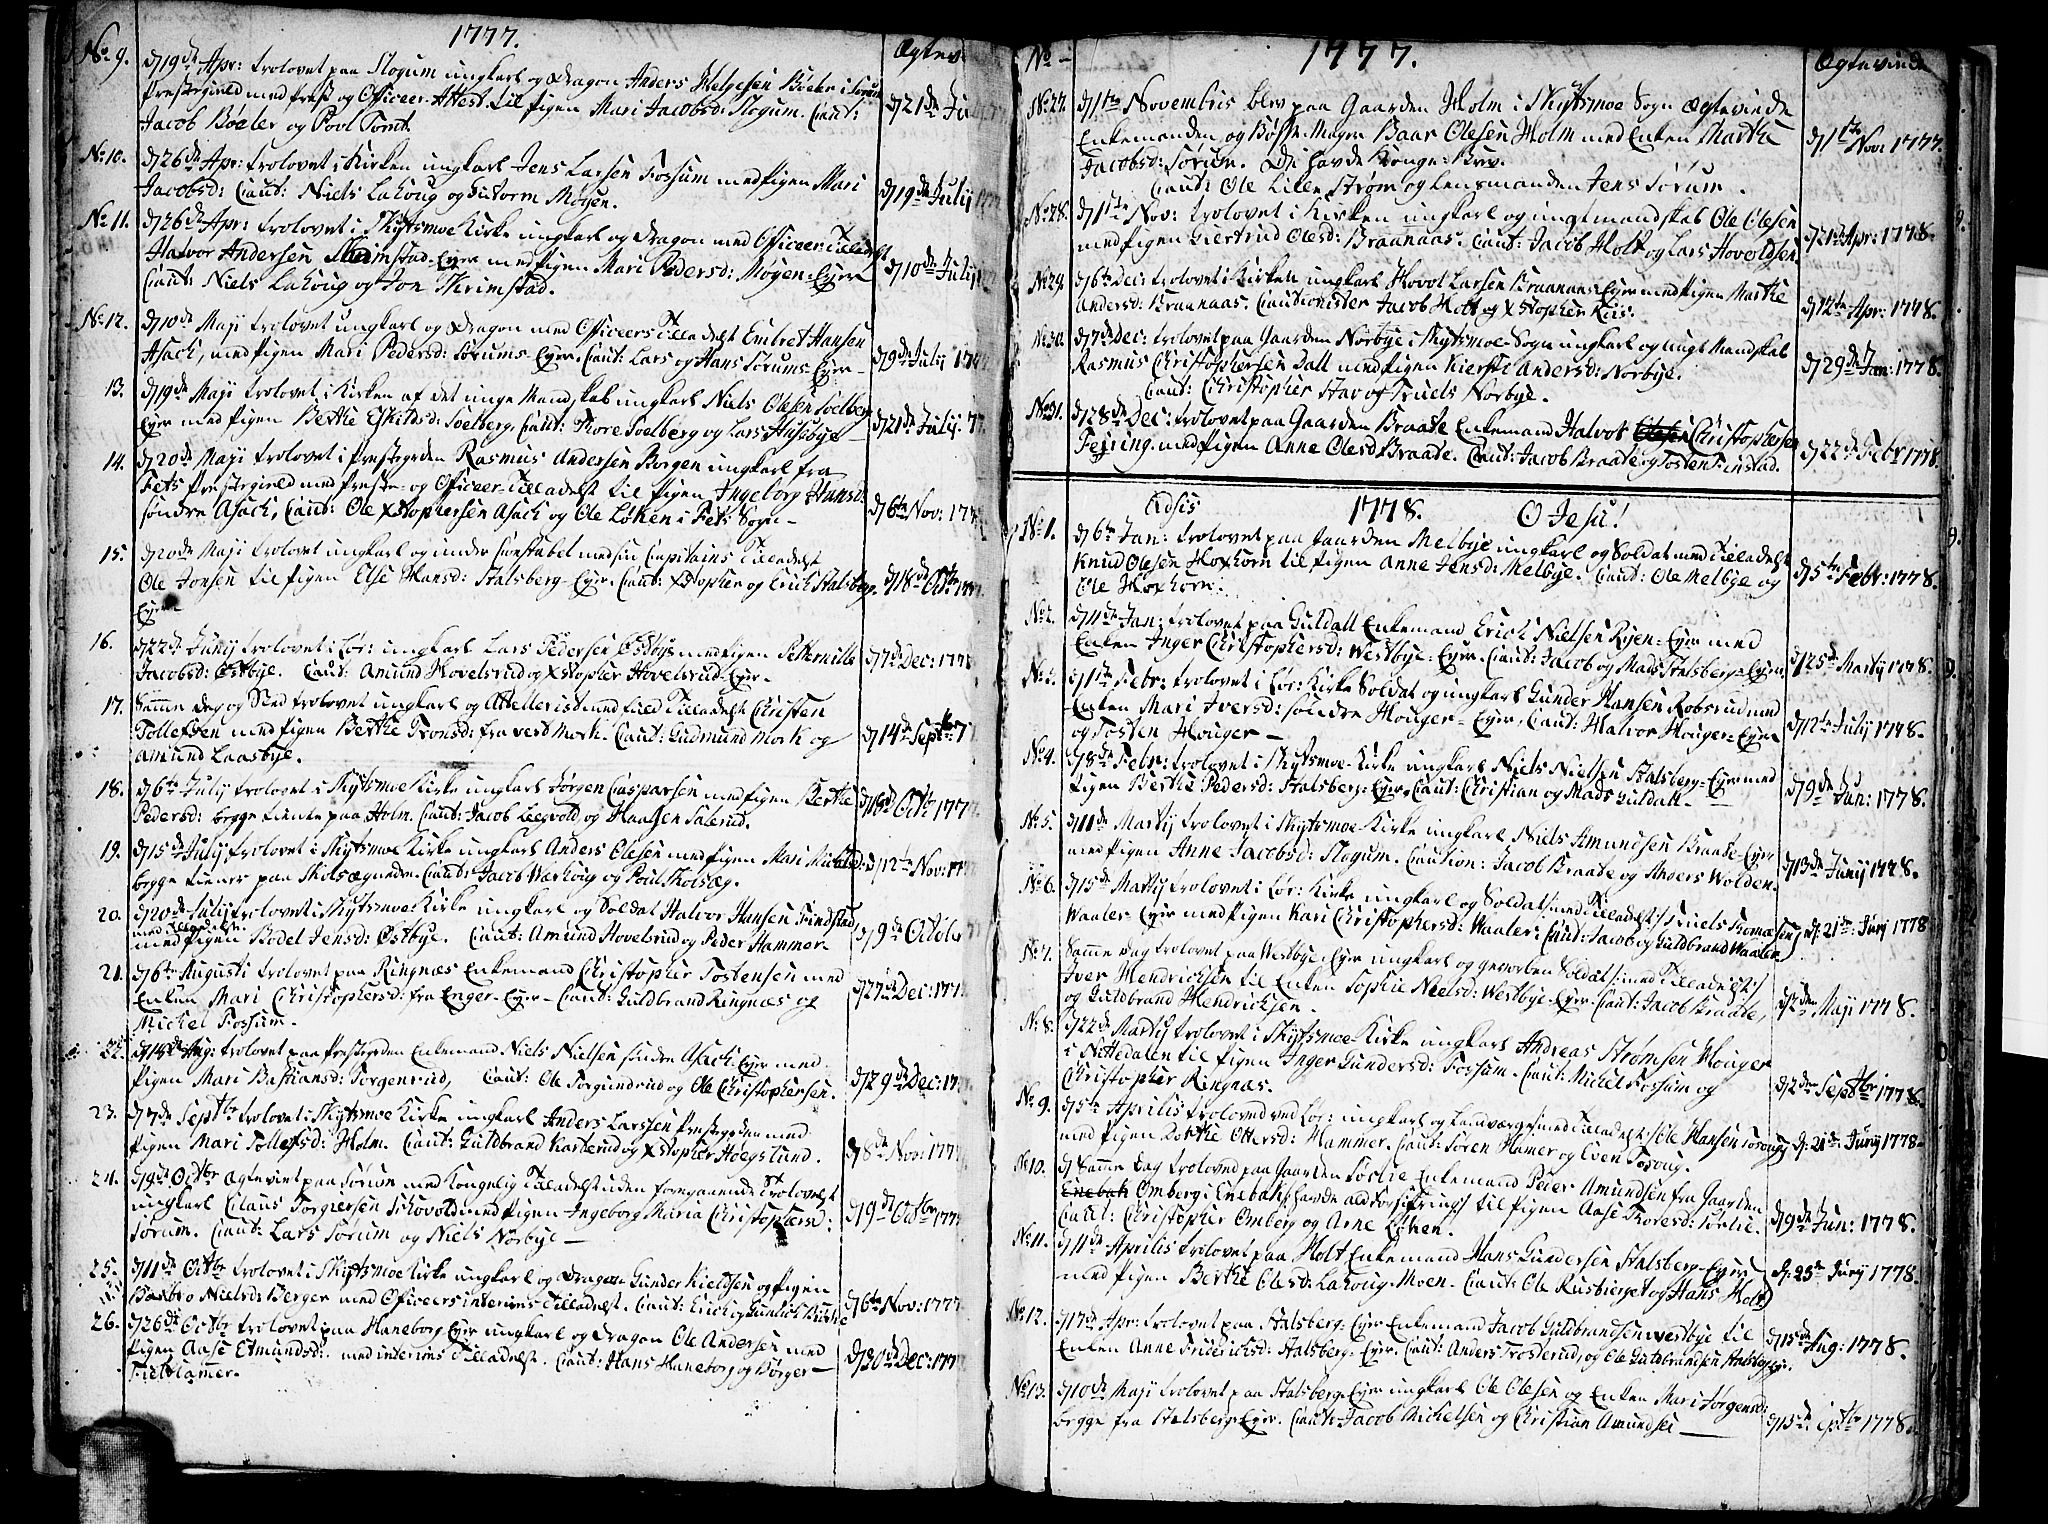 1777.
Ægtev.
No. 9. d 19de Apr: trolovet paa Slogum ungkarl og Dragon Anders Helgesen Bøeler i Sørum
Prestegield med Prest og Officeer-Attest til Pigen Mari Jacobsd: Slogum. Caut:
Jacob Bøeler og Povl Tomt.
d 21de
No. 10. d 26de Apr: trolovet i Kirken ungkarl Jens Larsen Fossum med Pigen Mari
Jacobsd: Caut: Niels Lahoug og Guttorm Moyen.
d 19de July
No. 11. d 26de Apr: trolovet i Skytsmoe Kirke ungkarl og Dragon med Officeer-Tilladelse
Halvor Andersen Thrimstad-Eyer med Pigen Mari Pedersd: Moyen-Eyer
Caut: Niels Lahoug og Jon Thrimstad.
d 10de July
No. 12. d 10de Maji trolovet ungkarl og Dragon med Officeers Tilladelse Embret Hansen
Asach, med Pigen Mari Pedersd: Sørums-Eyer. Caut: Lars og Hans Sørums-Eyer-
d 9de July
13. d 19de Maji trolovet i Kirken af det unge Mandskab ungkarl Niels Olesen Soelberg
Eyer med Pigen Berthe Eskildsd: Soelberg. Caut: Thore Soelberg og Lars Husebye
d 21de July. 77
14. d 20de Maji trolovet i Prestegrden Rasmus Andersen Borgen ungkarl fra
Fets Prestegield med Preste- og Officeer-Tilladelse til Pigen Ingeborg Hansd:
søndre Asach, Caut: Ole Xstophersen Asach og Ole Løken i Fets Sogn-
d 6te Nov: 177
15. d 20de Maji trolovet ungkarl og under Constabel med sin Capitains Tilladelse
Ole Jonsen til Pigen Else Hansd: Stalsberg-Eyer. Caut: Xstopher og Erich Stalsberg-
Eyer
d 18de Octbr.
16. d 22de Junij trolovet i Lør: ungkarl Lars Pedersen Ostbye med Pigen Petternille
Jacobsd: Østbye. Caut: Amund Hovelsrud og Xstopher Hovelsrud-Eyer-
d 7de Dec: 177
17. Samme dag og Sted trolovet ungkarl og Artellerist med Tilladelse Christen
Tollefsen med Pigen Berthe Tronsd: fra vest Mork. Caut: Gudmund Mork og
Amund Laasbye.
d 14de Septbr: 7
18. d 6te July trolovet i Skytsmoe Kirke ungkarl Jørgen Casparsen med Pigen Berthe
Pedersd: begge tiente paa Holm. Caut: Jacob Leegvold og Haagen Salerud.
Octb 1777
19. d 15de July trolovet i Skytsmoe Kirke ungkarl Anders Olesen med Pigen Mari
begge tiener paa Caut: Jacob Wæhoug og Poul
d 12te Nov:
20. d 20de July trolovet i Skytsmoe Kirke ungkarl og Soldat Halvor Hansen Findstad
med Tilladelse
med Pigen Bodel Jensd: Østbye. Caut: Amund Hovelsrud og Peder Hammer-
d 9de Octobr
21. d 6te Augusti trolovet paa Ringnæs Enkemand Christopher Tostensen med
Enken Mari Christophersd: fra Enger-Eyer- Caut: Guldbrand Ringnæs og
Michel Fossum.
d 27de Dec: 177
22. Aug: trolovet paa Prestegrden Enkemand Niels Nielsen søndre Asach-Eyer med
Pigen Mari Bastiansd: Torgenrud, Caut: Ole Torgundrud og Ole Christophersen.
d 29de Dec: 17
23. d 7de Septbr trolovet i Skytsmoe Kirke ungkarl Anders Larssen Prestegrden med
Pigen Mari Tollefsd: Holm. Caut: Guldbrand Karterud og Xstopher Hoegslund.
d 8de Nov: 177
24. d 19de Octbr ægteviet paa Sørum med Kongelig Tilladelse uden foregaaende Trolovelse
ungkarl Claus Torgiersen Schovold med Pigen Ingeborg Maria Christophersd:
Sørum. Caut: Lars Sørum og Niels Norbye-
d 19de Octbr 177
25. d 11de Octbr trolovet i Skytsmoe Kirke ungkarl og Dragon Gunder Kieldsen og Pigen
Barbro Nielsd: Berger med Officeers interims Tilladelse. Caut: Erich og Gunder
d 6te Nov: 1777
26. d 26de Octbr trolovet paa Haneborg-Eyer ungkarl og Dragon Ole Andersen med
Pigen Aase Etmundsd: med interims Tilladelse. Caut: Hans Haneborg og Børger-
Fieldhamer.
d 30te Dec: 177
No- 1777. Ægtevinde
No. 27. d 1te Novembris blev paa Gaarden Holm i Skytsmoe Sogn Ægtevinde
Enkemanden og Bøsse-Mager Baar Olesen Holm med Enken Marthe
Jacobsd: Sørum. De havde Konge-Brev.
Caut: Ole Lille Strøm og Lensmanden Jens Sørum.
d 1te Nov: 1777.
No. 28. d 1te Nov: trolovet i Kirken ungkarl og ungt mandskab Ole Olesen
med Pigen Giertrud Olesd: Braanaas. Caut: Jacob Holt og Lars Hovoldsen.
d 21de Apr: 1778.
No. 29. d 6te Dec: trolovet i Kirken ungkarl Hovol Larsen Braanaas-Eyer med Pigen Marthe
Andersd: Braanaas. Cautionister Jacob Holt og Xstopher Riis.
d 12te Apr: 1778.
No. 30. d 7de Dec: trolovet paa Gaarden Norbye i Skytsmoe-Sogn ungkarl og ungt Mandskab
Rasmus Christophersen Dall med Pigen Kierstie Andersd: Norbye.
Caut: Christopher Stav og Truels Norbye.
d 29de Jan: 1778.
No. 31. d 28de Dec: trolovet paa Gaarden Braate Enkemand Halvor Olesen Christophersen
Feiring med Pigen Anne Olesd: Braate. Caut: Jacob Braate og Tosten Finstad.
d 22de Febr 1778.
Adsis 1778. O Jesu!
No. 1. d 6te Jan: trolovet paa Gaarden Melbye ungkarl og Soldat med Tilladelse
Knud Olesen Hoxhorn til Pigen Anne Jensd: Melbye. Caut: Ole Melbye og
Ole Hoxhorn:
d 5te Febr: 1778.
No. 2. d 11de Jan: trolovet paa Guldall Enkemand Erich Nielsen Ryen-Eyer med
Enken Inger Christophersd: Westbye-Eyer. Caut: Jacob og Mads Stalsberg-Eyer.
d 25de Martij 1778.
No. 3. d 1te Febr: trolovet i Lør: Kirke Soldat og ungkarl Gunder Hansen Robsrud med
Enken Mari Iversd: søndre Houger-Eyer, Caut: Halvor Houger-Eyer
og Tosten Houger-
d 12te July 1778.
No. 4. d 8de Febr: trolovet i Skytsmoe-Kirke ungkarl Niels Nielsen Stalsberg-Eyer med
Pigen Berthe Pedersd: Stalsberg-Eyer, Caut: Christian og Mads Guldall-
d 9de Jun: 1778.
No. 5. d 11de Martij trolovet i Skytsmoe-Kirke ungkarl Niels Amundsen Braate-Eyer
med Pigen Anne Jacobsd: Slogum. Caution: Jacob Braate og Anders Wolden.
d 13de Junij 1778.
No. 6. d 15de Martij trolovet i Lør: Kirke ungkarl og Soldat /: med Tilladelse :/ Truels Thomæsen
Waaler-Eyer med Pigen Kari Christophersd: Waaler: Caut: Jacob og Guldbrand Waaler
d. 21de: Junj 1778
No. 7. Samme Dag trolovet paa Westbye-Eyer ungkarl og geworben Soldat /: med Tilladelse :/
Iver Hendrichsen til Enken Sophie Nielsd: Westbye-Eyer. Caut: Jacob Braate
og Guldbrand Hendrichsen.
d 2den Maji 1778.
No. 8. d 22de Martij trolovet i Skytsmoe Kirke ungkarl Andreas Strømsen Houger
i Nittedalen til Pigen Inger Gundersd: Fossum. Caut: Michel Fossum og
Christopher Ringnæs.
d 2den Septbr 1778.
No. 9. d 5te Aprilis troloved ved Lør: ungkarl og Landværge /: med Tilladelse :/ Ole Hansen Toroug
med Pigen Dorthe Ottersd: Hammer. Caut: Søren Hamer og Even Toroug.
d. 21de: Junij 1778-
No. 10. d Samme Dag troloved paa Gaarden Sørlie Enkemand Peder Amundsen fra Gaarden
Enebak Omberg i Enebak /: havde ald Forsikring :/ til Pigen Aase Thoresd: Sørlie.
Caut: Christopher Omberg og Arne Løken.
d 9de Jun: 1778.
No. 11. d 11de Aprilis trolovet paa Holt Enkemand Hans Gundersen Stalsberg-Eyer
med Pigen Berthe Olesd: Lahoug-Moen. Caut: Ole Rusbierget og Hans Holt
d. 25de Junij 1778.
No. 12. d 17de Apr: trolovet paa Stalsberg-Eyer Enkemand Jacob Guldbrandsen Westbye til
Enken Anne Friderichsd: Stalsberg-Eyer. Caut: Anders Trosterud, og Ole Guldbrandsen Stalsbergeyer.
d 15de Aug: 1778.
No. 13. d 10de Maji trolovet paa Stalsberg-Eyer ungkarl Ole Olesen og Enken Mari Jørgensd:
begge fra Stalsberg-Eyer. Caut: Jacob Michelsen og Christian Amundsen-
d 15de Septbr 1778.